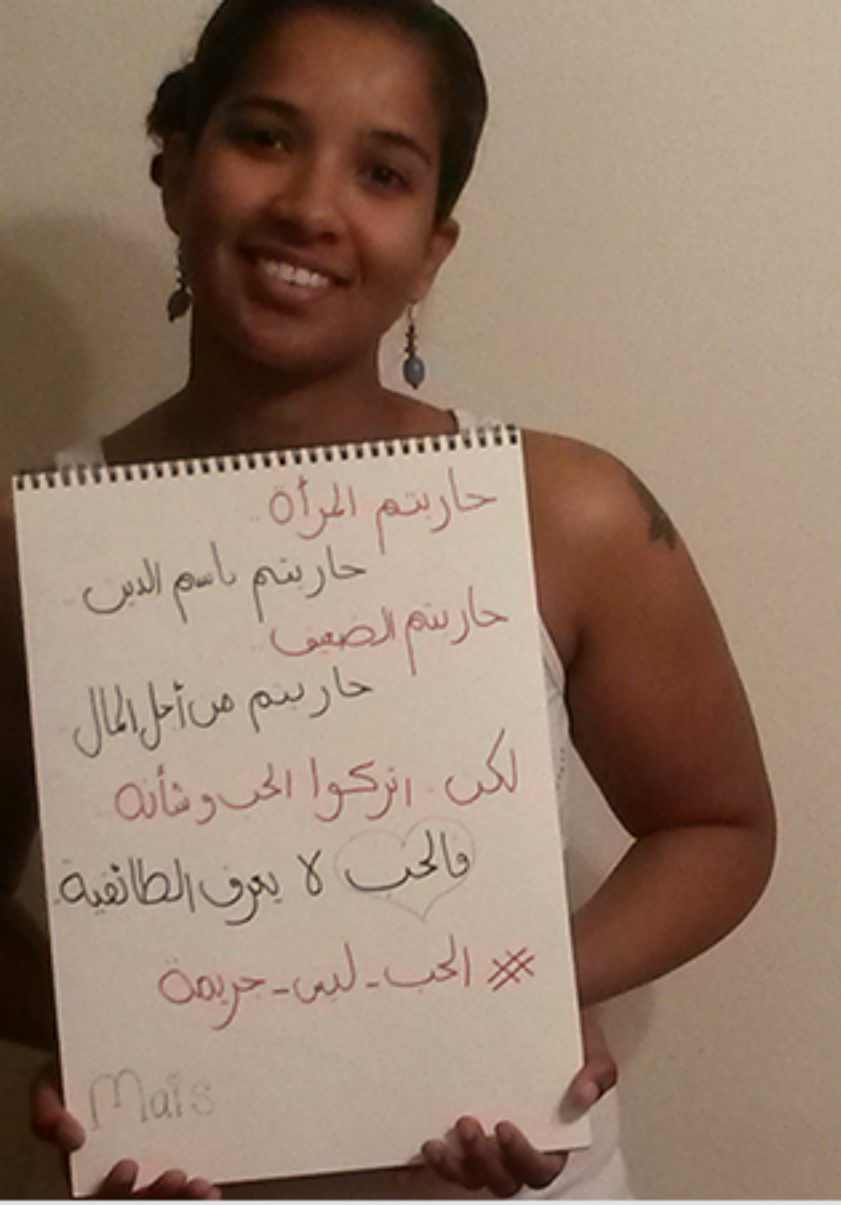 حاربتم المرأة..
حاربتم باسم الدين..
حاربتم الضعيف..
حاربتم من أجل المال
لكن اتركوا الحب وشأنه
فالحب لا يعرف الطائفية.
#الحب_ليس_جريمة
Maïs